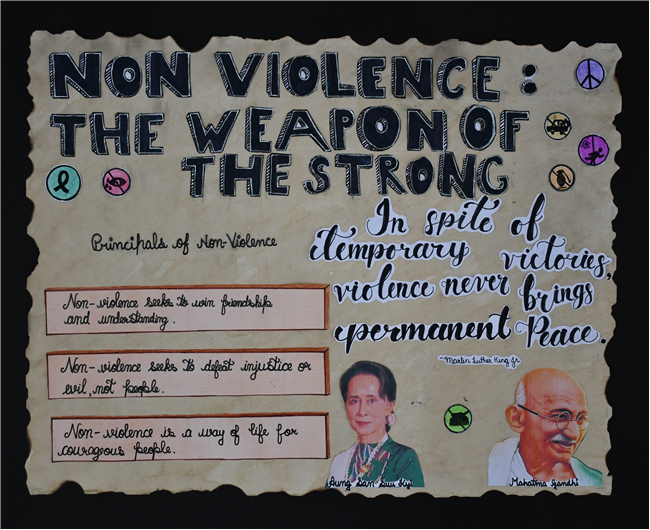 NON VIOLENCE :
THE WEAPON OF
THE STRONG
Principals of Non-Violence
In spite of
temporary victories,
violence never brings
permanent Peace.
- Martin Luther King Jr.
Non-violence seeks to win friendship
and understanding.
Non-violence seeks to defeat injustice or
evil, not people.
Non-violence is a way of life for
courageous people.
Aung San Suu Kyi
Mahatma Gandhi